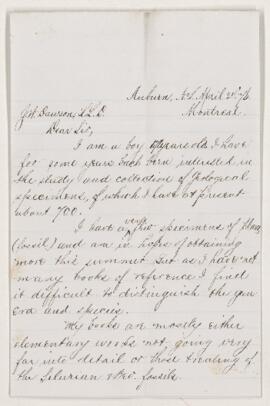 Auburn, N.Y. April 20th/76
J.W. Dawson, LL.D. Montreal.
Dear Sir,
I am a boy years old. I have
for some years back been interested in
the study and collection of Geological
specimens, of which I have at present
about 700.
I have a very few specimens of
(fossil) and am in hopes of obtaining
more this summer but as I have not
many books of reference I find
it difficult to distinguish the gen
era and species.
My books are mostly either
elementary works not going very
far into detail or those treating of
the Silurian & Dev. fossils.